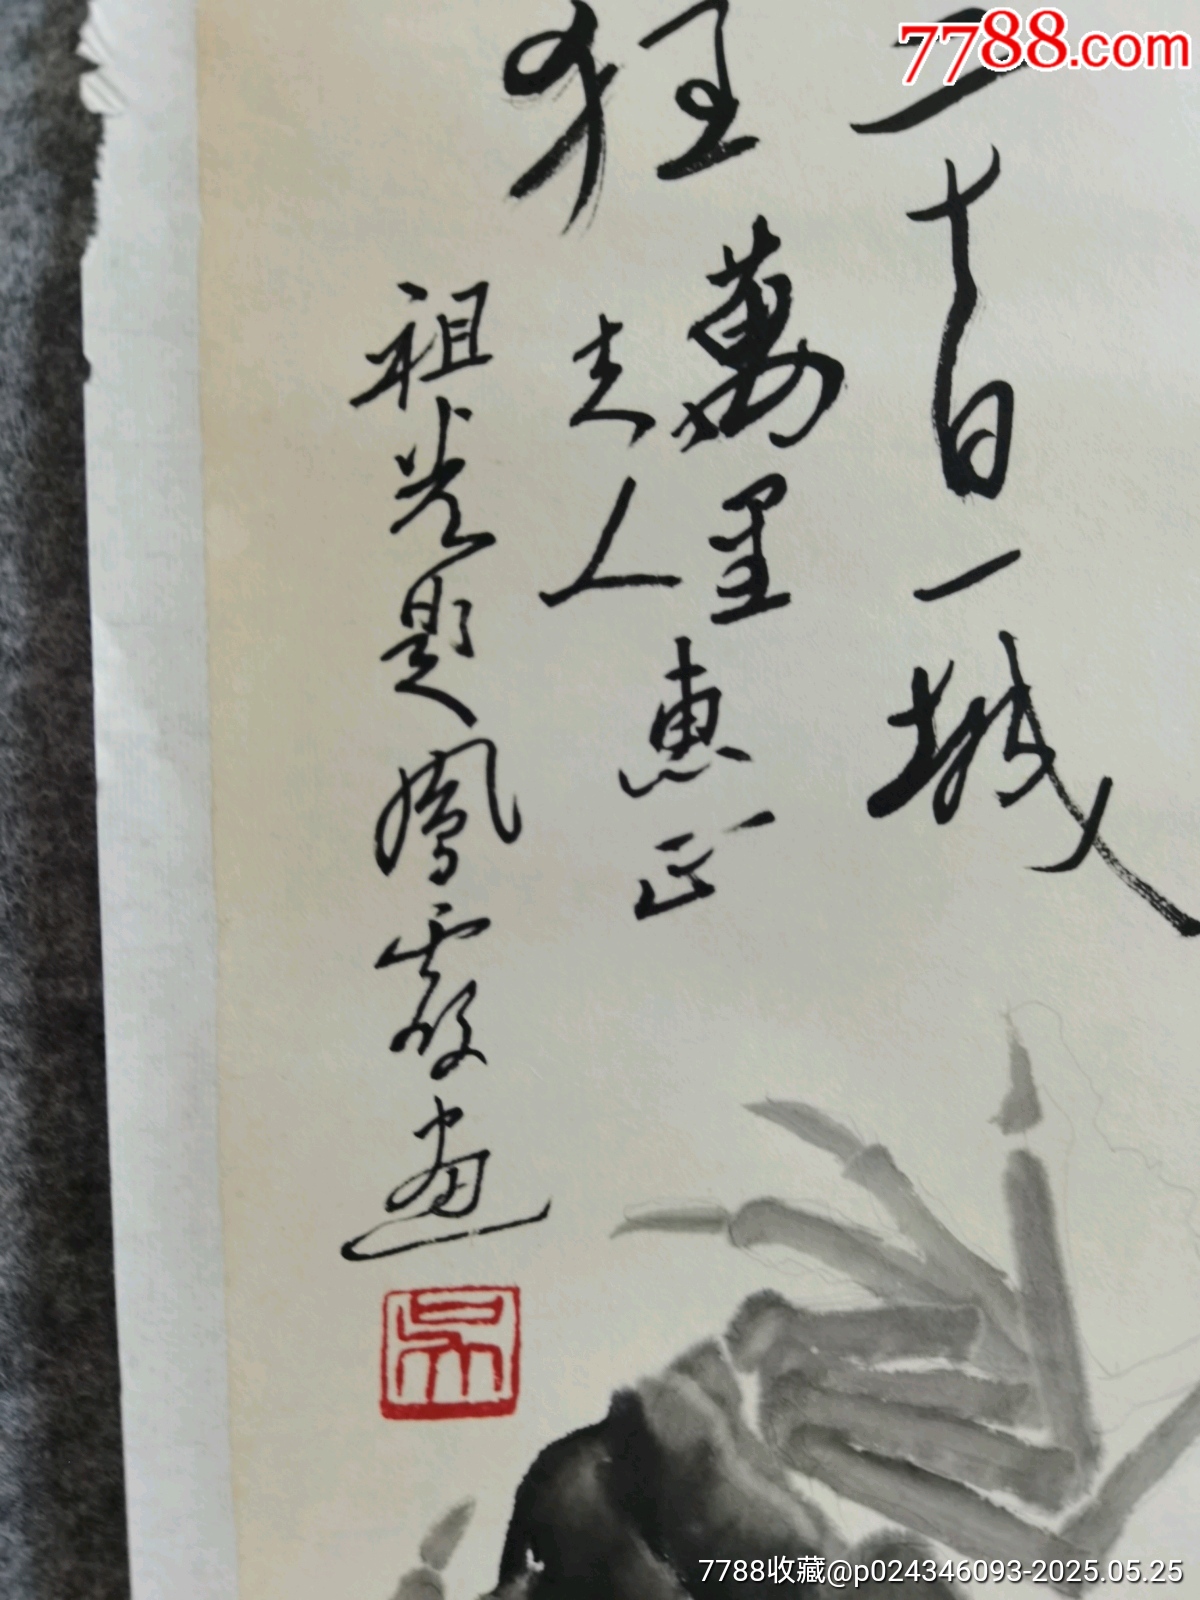 7788.com
一城
狂
萬里
夫人
惠正
祖光題鳳霞畫
吳
7788收藏@p024346093-2025.05.25